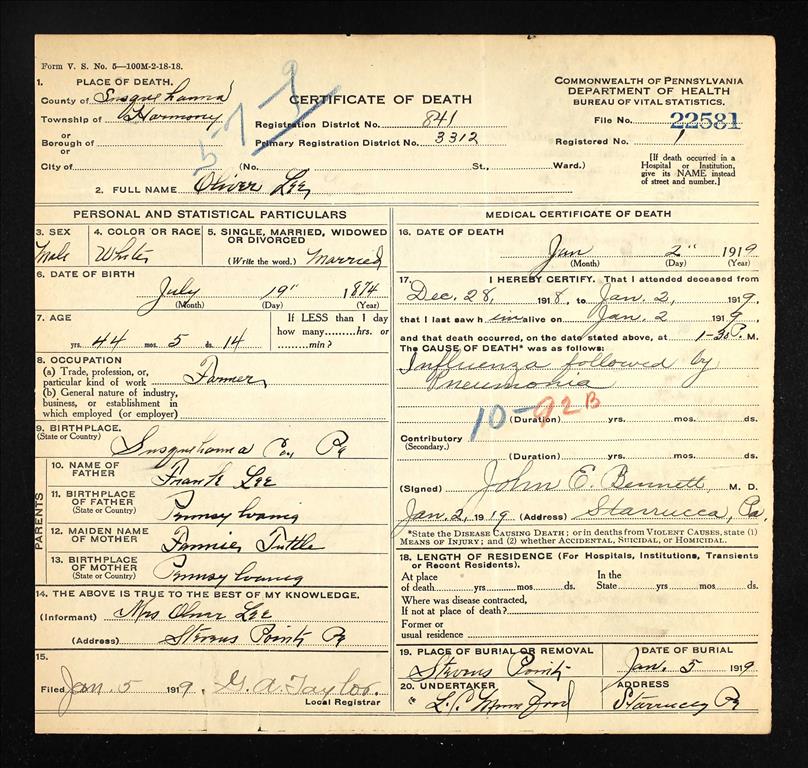 Form V. S. No. 5—100M-2-18-18.
1. PLACE OF DEATH.
County of Susquehanna
Township of Harmony
or
Borough of
or
City of
(No. St., Ward.)
CERTIFICATE OF DEATH
Registration District No. 841
Primary Registration District No. 3312
5-7-9
COMMONWEALTH OF PENNSYLVANIA
DEPARTMENT OF HEALTH
BUREAU OF VITAL STATISTICS.
File No. 22581
Registered No. 1
[If death occurred in a Hospital or Institution, give its NAME instead of street and number.]
2. FULL NAME Oliver Lee
PERSONAL AND STATISTICAL PARTICULARS
3. SEX
Male
4. COLOR OR RACE
White
5. SINGLE, MARRIED, WIDOWED OR DIVORCED
(Write the word.) Married
6. DATE OF BIRTH
July 19" 1874
(Month) (Day) (Year)
7. AGE
yrs. 44 mos. 5 ds. 14
If LESS than 1 day
how many hrs. or
min.?
8. OCCUPATION
(a) Trade, profession, or, particular kind of work Farmer
(b) General nature of industry, business, or establishment in which employed (or employer)
9. BIRTHPLACE.
(State or Country)
Susquehanna Co, Pa
PARENTS
10. NAME OF FATHER
Frank Lee
11. BIRTHPLACE OF FATHER
(State or Country)
Pennsylvania
12. MAIDEN NAME OF MOTHER
Fannie Tuttle
13. BIRTHPLACE OF MOTHER
(State or Country)
Pennsylvania
14. THE ABOVE IS TRUE TO THE BEST OF MY KNOWLEDGE.
(Informant) Mrs Oliver Lee
(Address) Stevens Point Pa
15.
Filed Jan 5 1919. G. A. Taylor.
Local Registrar
MEDICAL CERTIFICATE OF DEATH
16. DATE OF DEATH
Jan 2" 1919
(Month) (Day) (Year)
17. I HEREBY CERTIFY. That I attended deceased from
Dec. 28, 1918, to Jan. 2, 1919.
that I last saw him alive on Jan. 2 1919.
and that death occurred, on the date stated above, at 1-30 P. M.
The CAUSE OF DEATH* was as follows:
Influenza followed by
Pneumonia
10-92B
(Duration) yrs. mos. ds.
Contributory
(Secondary.)
(Duration) yrs. mos. ds.
(Signed) John E. Bennett, M. D.
Jan. 2, 1919 (Address) Starrucca, Pa.
*State the DISEASE CAUSING DEATH; or in deaths from VIOLENT CAUSES, state (1) MEANS OF INJURY; and (2) whether ACCIDENTAL, SUICIDAL, or HOMICIDAL.
18. LENGTH OF RESIDENCE (For Hospitals, Institutions, Transients or Recent Residents).
At place of death yrs. mos. ds. In the State yrs. mos. ds.
Where was disease contracted,
If not at place of death?
Former or
usual residence
19. PLACE OF BURIAL OR REMOVAL
Stevens Point
DATE OF BURIAL
Jan. 5 1919
20. UNDERTAKER
ADDRESS
Starrucca Pa